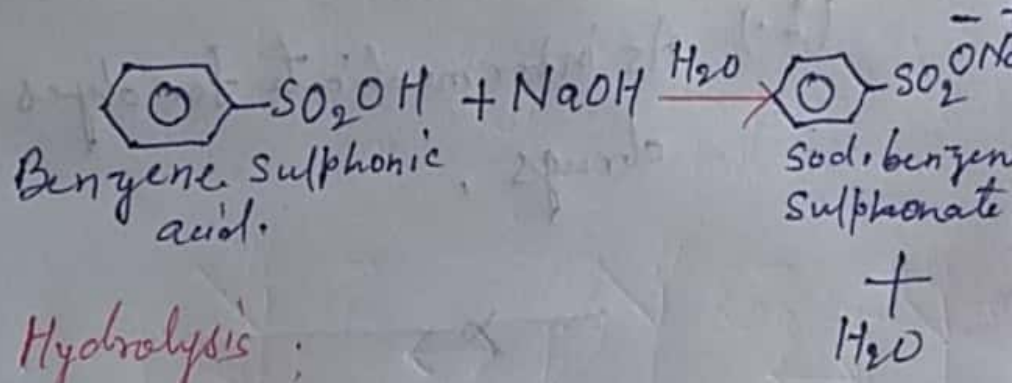 SO₂OH + NaOH H₂O SO₂ON
Benzene Sulphonic acid.
Sod. benzen
Sulphonate
+
H₂O
Hydrolysis :